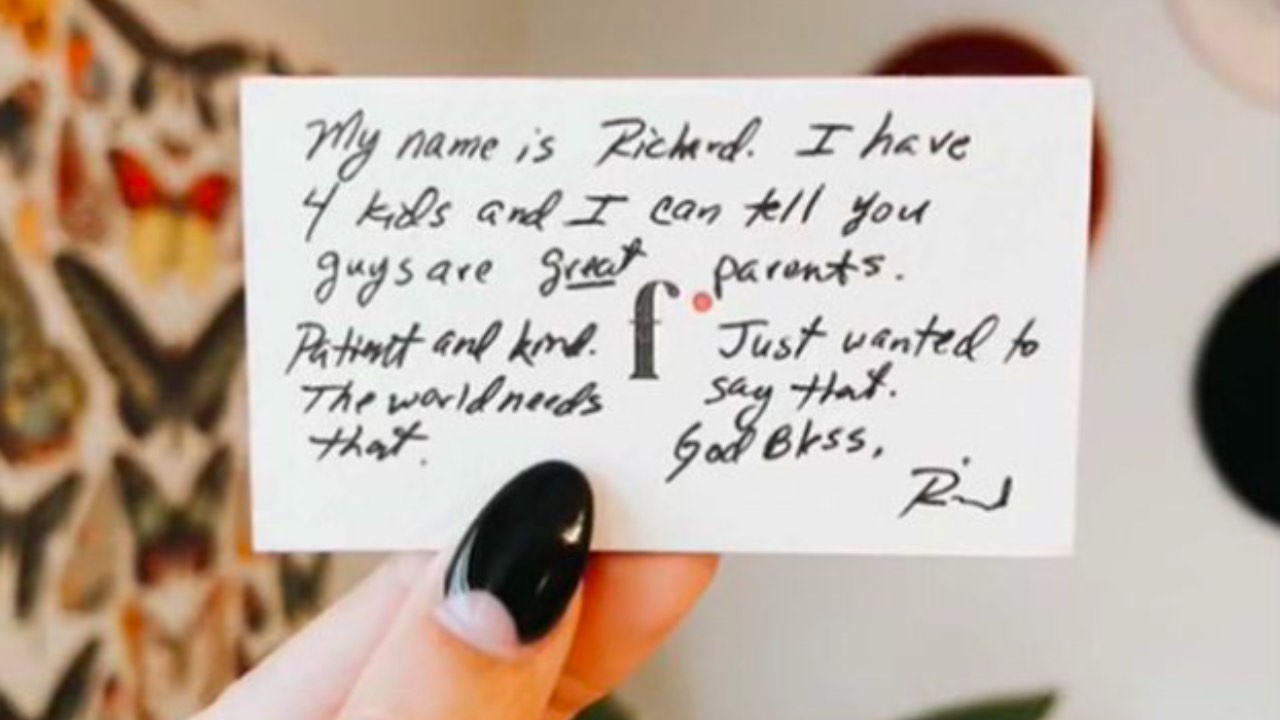 My name is Richard. I have
4 kids and I can tell you
guys are great parents.
Patient and kind.
The world needs
that.
f.
Just wanted to
say that.
God Bless,
Richard